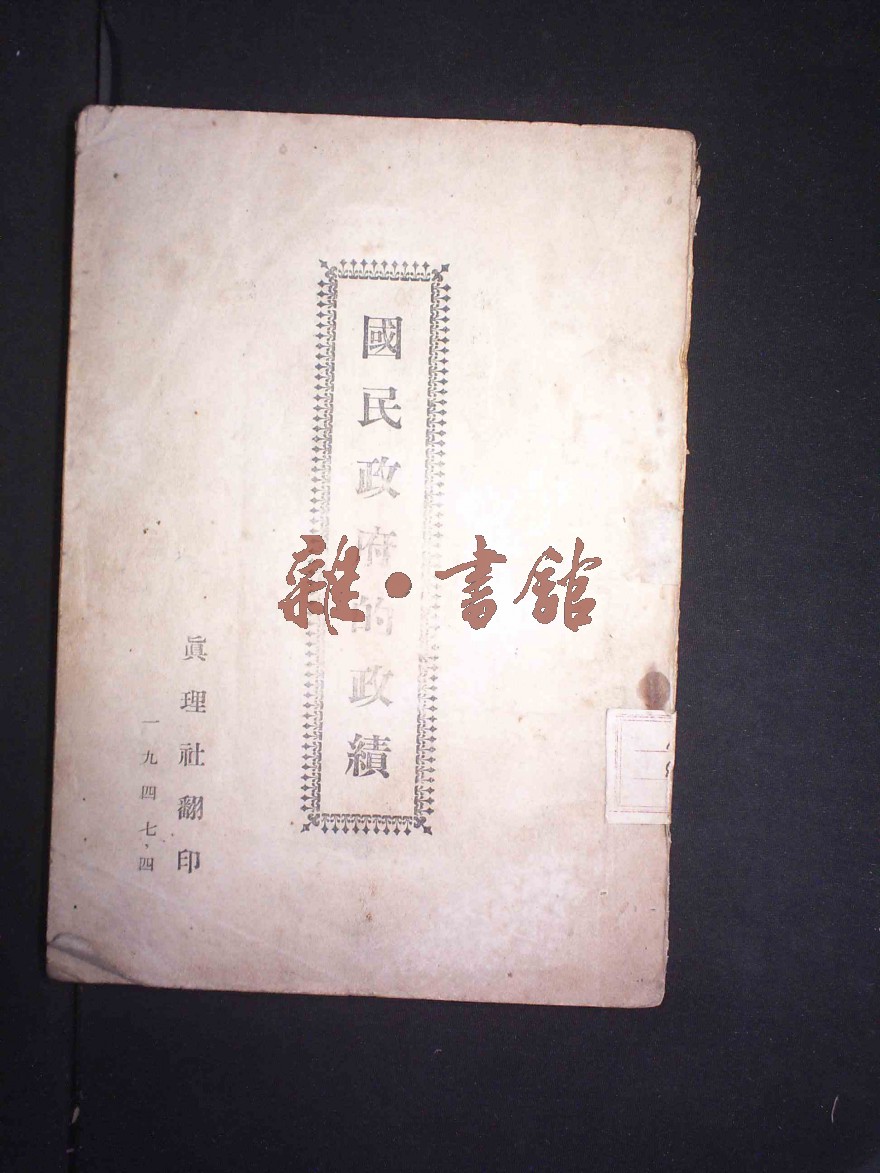 國民政府的政績
眞理社翻印
一九四七、四
雜•書館